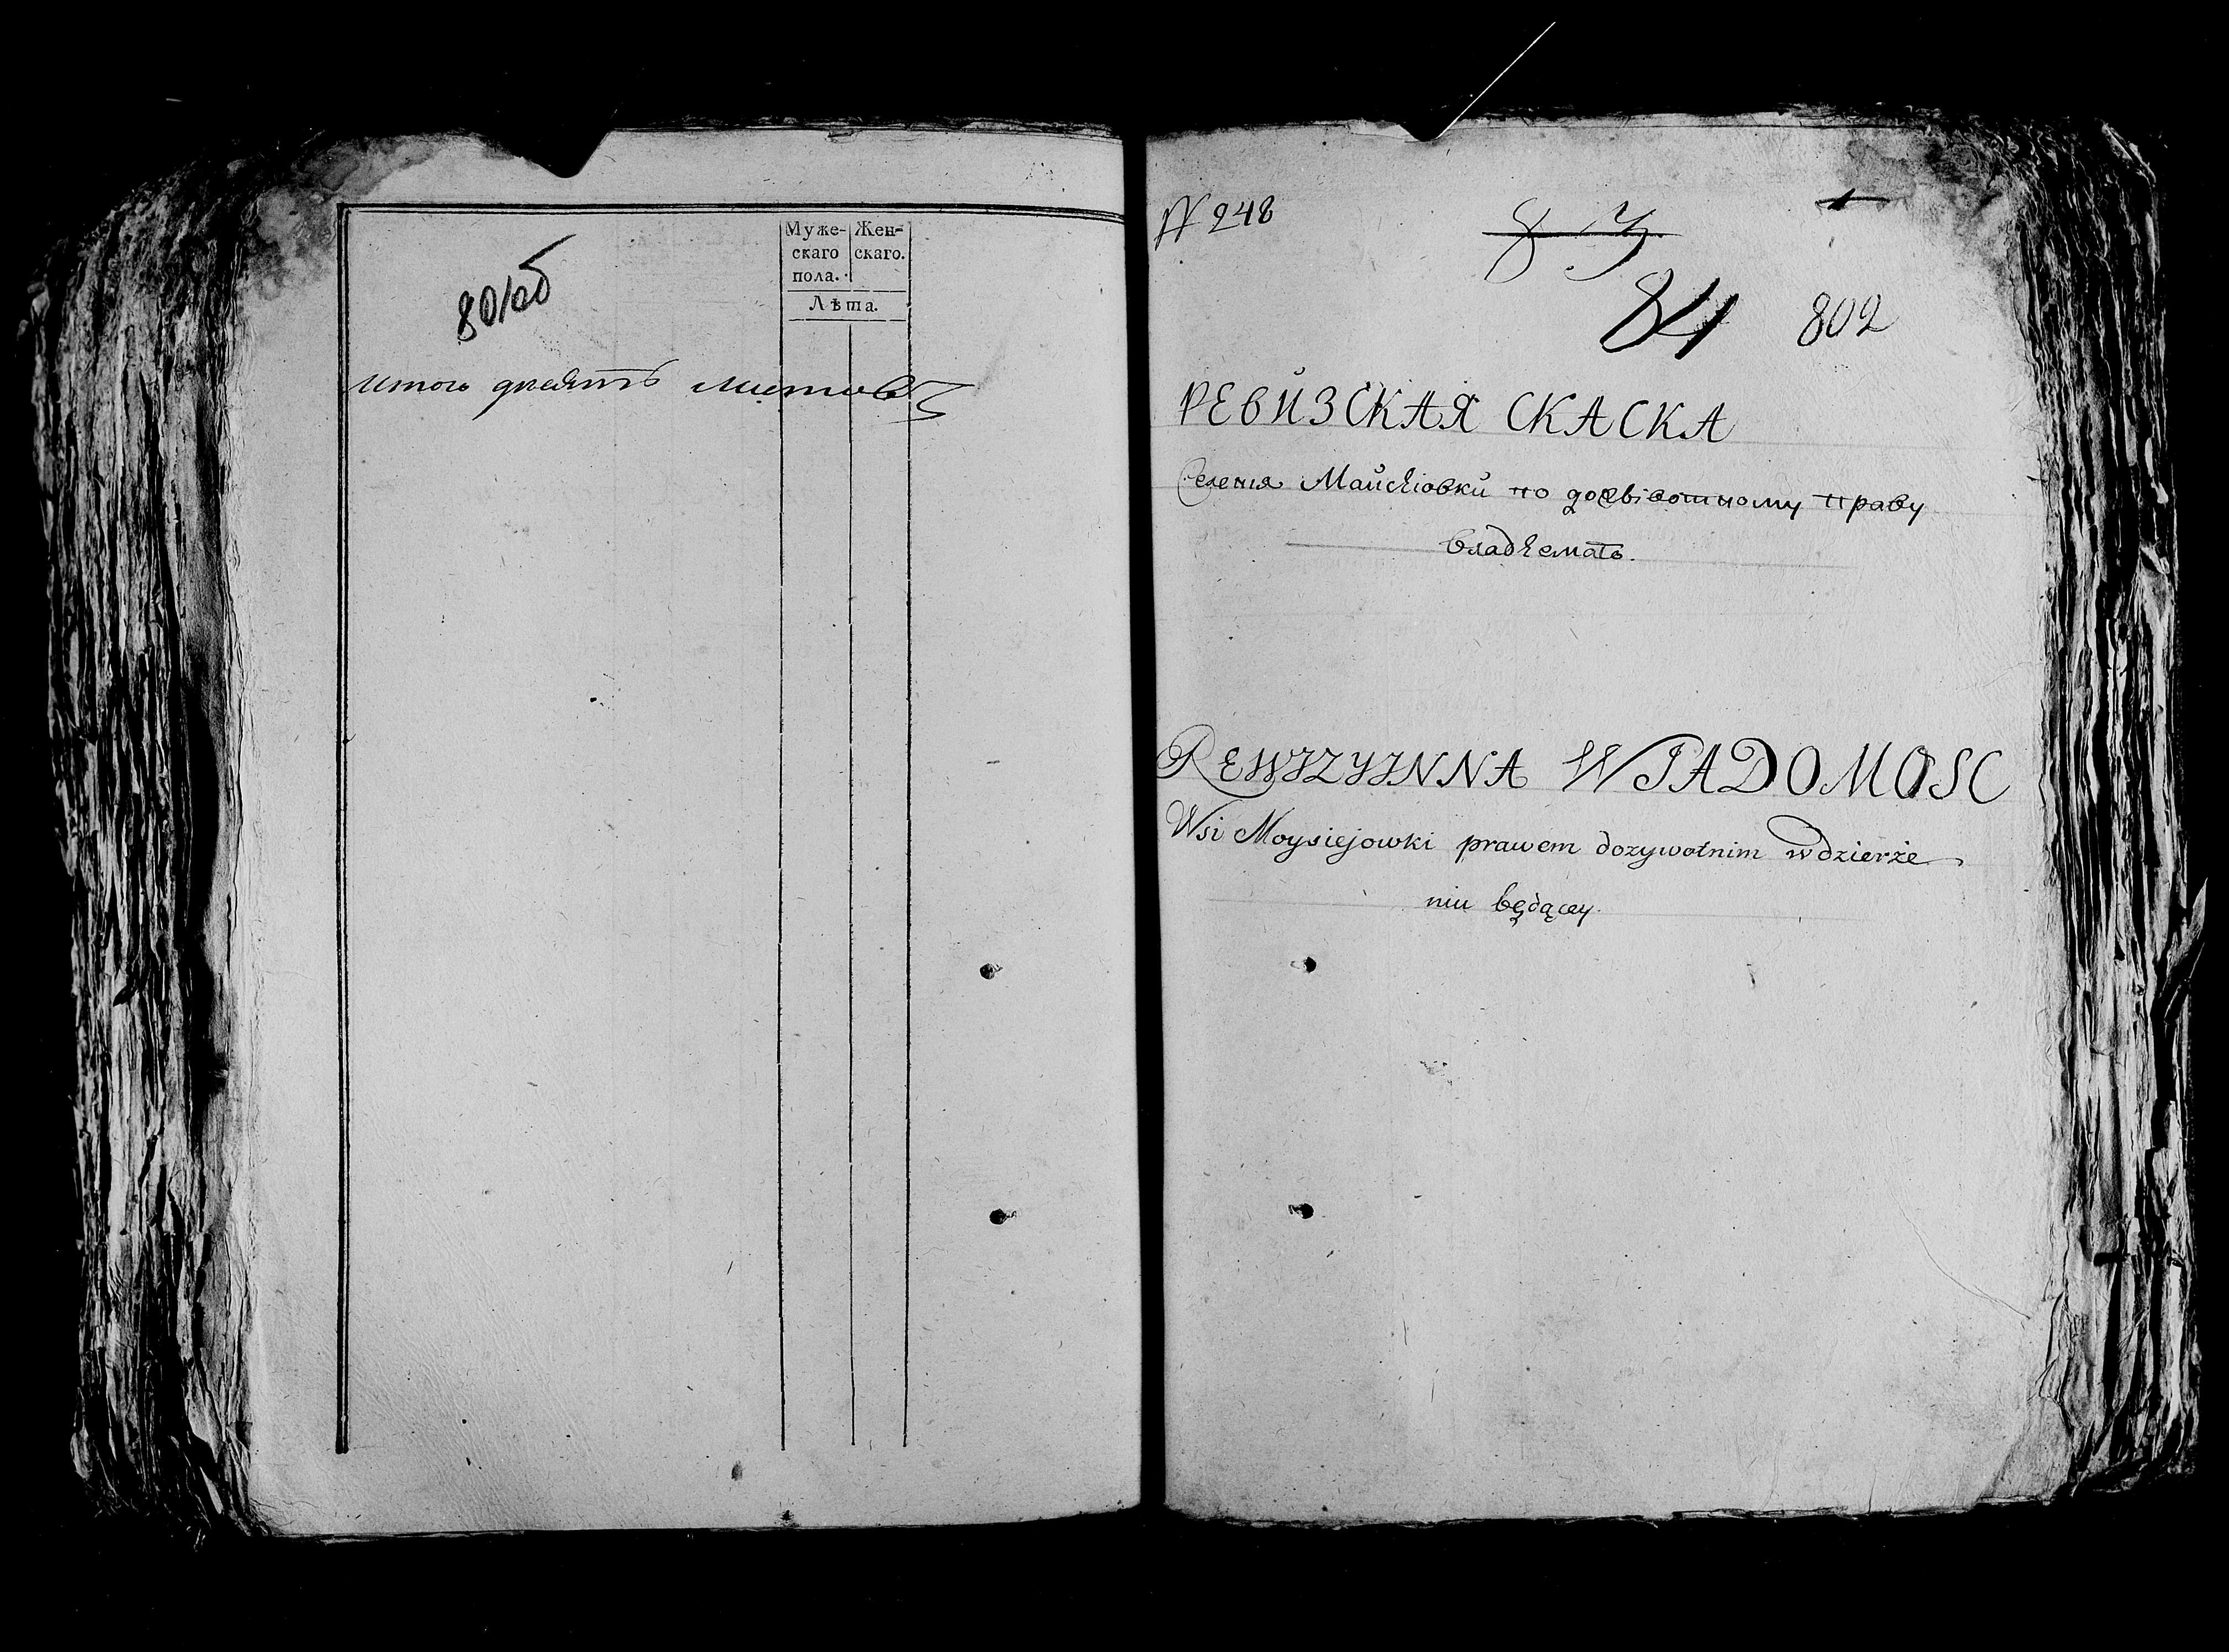 801об
Муже-
скаго
пола.
Жен-
скаго.
Лѣта.
итого девять листовъ
N 248
83
84 802
РЕВИЗСКАЯ СКАСКА
Селенiя Майсѣiовки по дожвiвотному праву
владѣематъ.
REWIZYINNA WIADOMOSC
Wsi Moysiejowki prawem dozywotnim w dzierże
niu będącey.